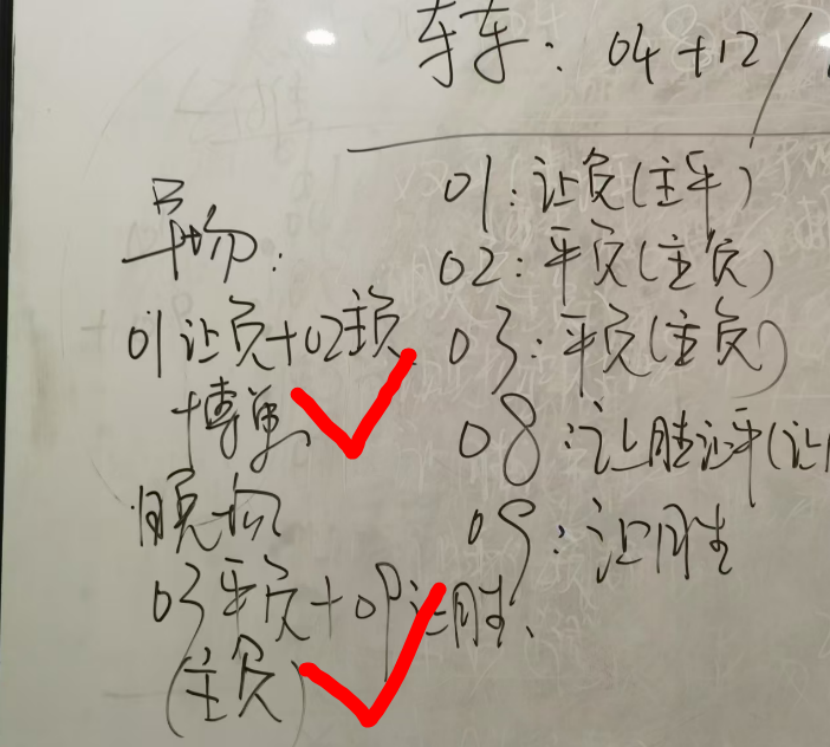 车车: 04+12/
01:让负(主平)
早场:
02:平负(主负)
01让负+02主负
03:平负(主负)
博单
08:让胜让平(让
晚场
09:让胜
03平负+09让胜
(主负)